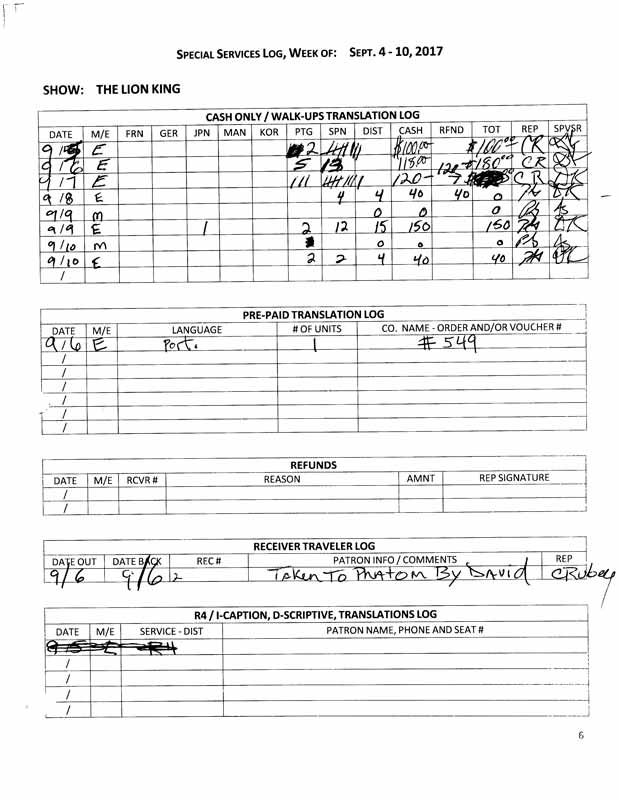 SPECIAL SERVICES LOG, WEEK OF: SEPT. 4 - 10, 2017
SHOW: THE LION KING
CASH ONLY / WALK-UPS TRANSLATION LOG
DATE M/E FRN GER JPN MAN KOR PTG SPN DIST CASH RFND TOT REP SPVSR
9/5 E 2 $100.00 $100.00 CR
9/6 E 5 13 118.00 $180.00 CR
9/7 E 120- CR
9/8 E 4 4 40 40 0
9/9 M 0 0 0
9/9 E 1 2 12 15 150 150
9/10 M 0 0 0
9/10 E 2 2 4 40 40
/
PRE-PAID TRANSLATION LOG
DATE M/E LANGUAGE # OF UNITS CO. NAME - ORDER AND/OR VOUCHER #
9/6 E Port. 1 # 549
/
/
/
/
/
/
REFUNDS
DATE M/E RCVR # REASON AMNT REP SIGNATURE
/
/
RECEIVER TRAVELER LOG
DATE OUT DATE BACK REC # PATRON INFO / COMMENTS REP
9/6 9/6 2 Taken To Phatom By David
R4 / I-CAPTION, D-SCRIPTIVE, TRANSLATIONS LOG
DATE M/E SERVICE - DIST PATRON NAME, PHONE AND SEAT #
9/5 E R4
/
/
/
/
6